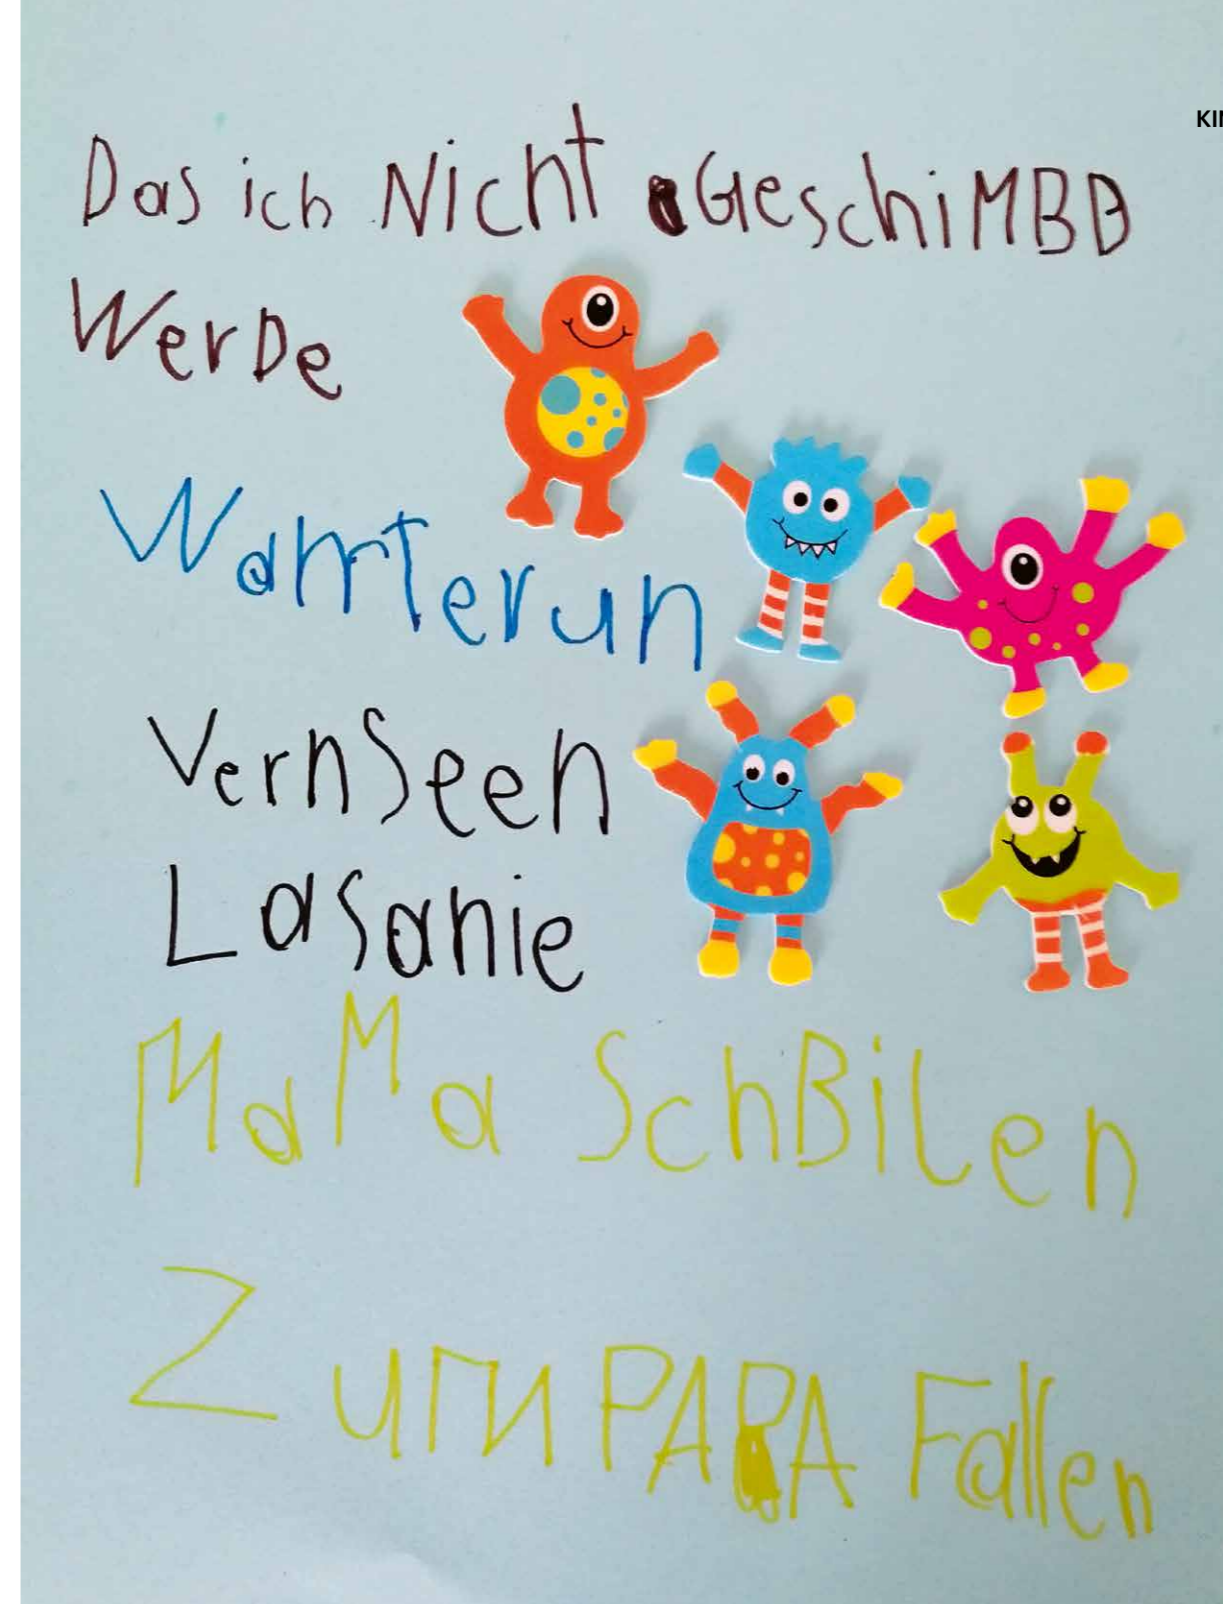 KIN
Das ich Nicht GeschiMBD
WerDe
Wamterun
VernSeen
LaSanie
MaMa SchBilen
Zum PAPA Fallen